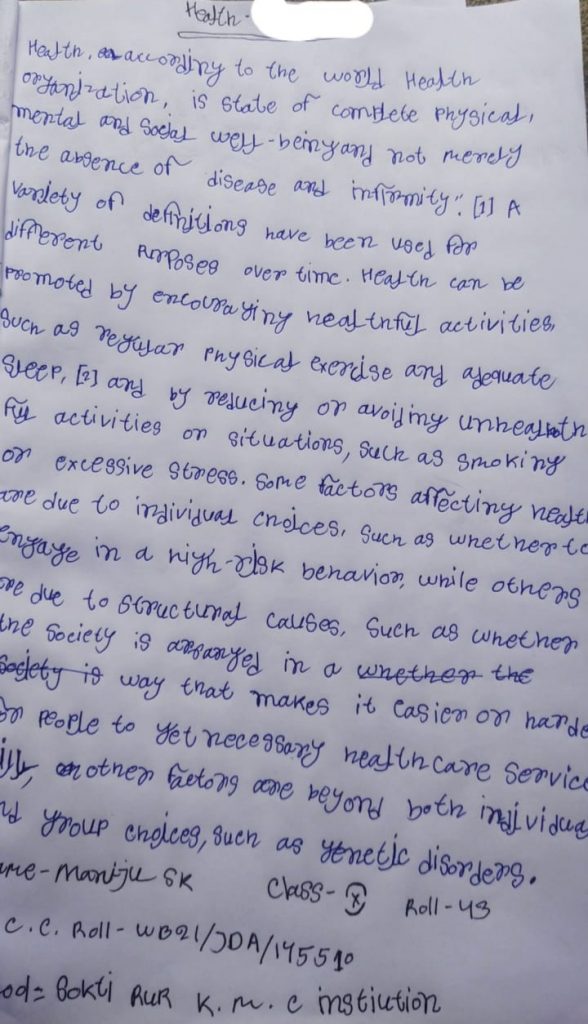 Health -
Health, according to the world Health
organization, is state of complete physical,
mental and social well-being and not merely
the absence of disease and infirmity". [1] A
variety of definitions have been used for
different purposes over time. Health can be
promoted by encouraging healthful activities,
such as regular physical exercise and adequate
sleep, [2] and by reducing or avoiding unhealth
ful activities or situations, such as smoking
or excessive stress. Some factors affecting health
are due to individual choices, such as whether to
engage in a high-risk behavior, while others
are due to structural causes, such as whether
the society is arranged in a whether the
society is way that makes it easier or harde
for people to get necessary healthcare service
other factors are beyond both individua
nd group choices, such as genetic disorders.
me - Manju SK Class - X Roll - 43
C.C. Roll - WB21/JDA/145510
od = Bokti PUR K. M. C instiution